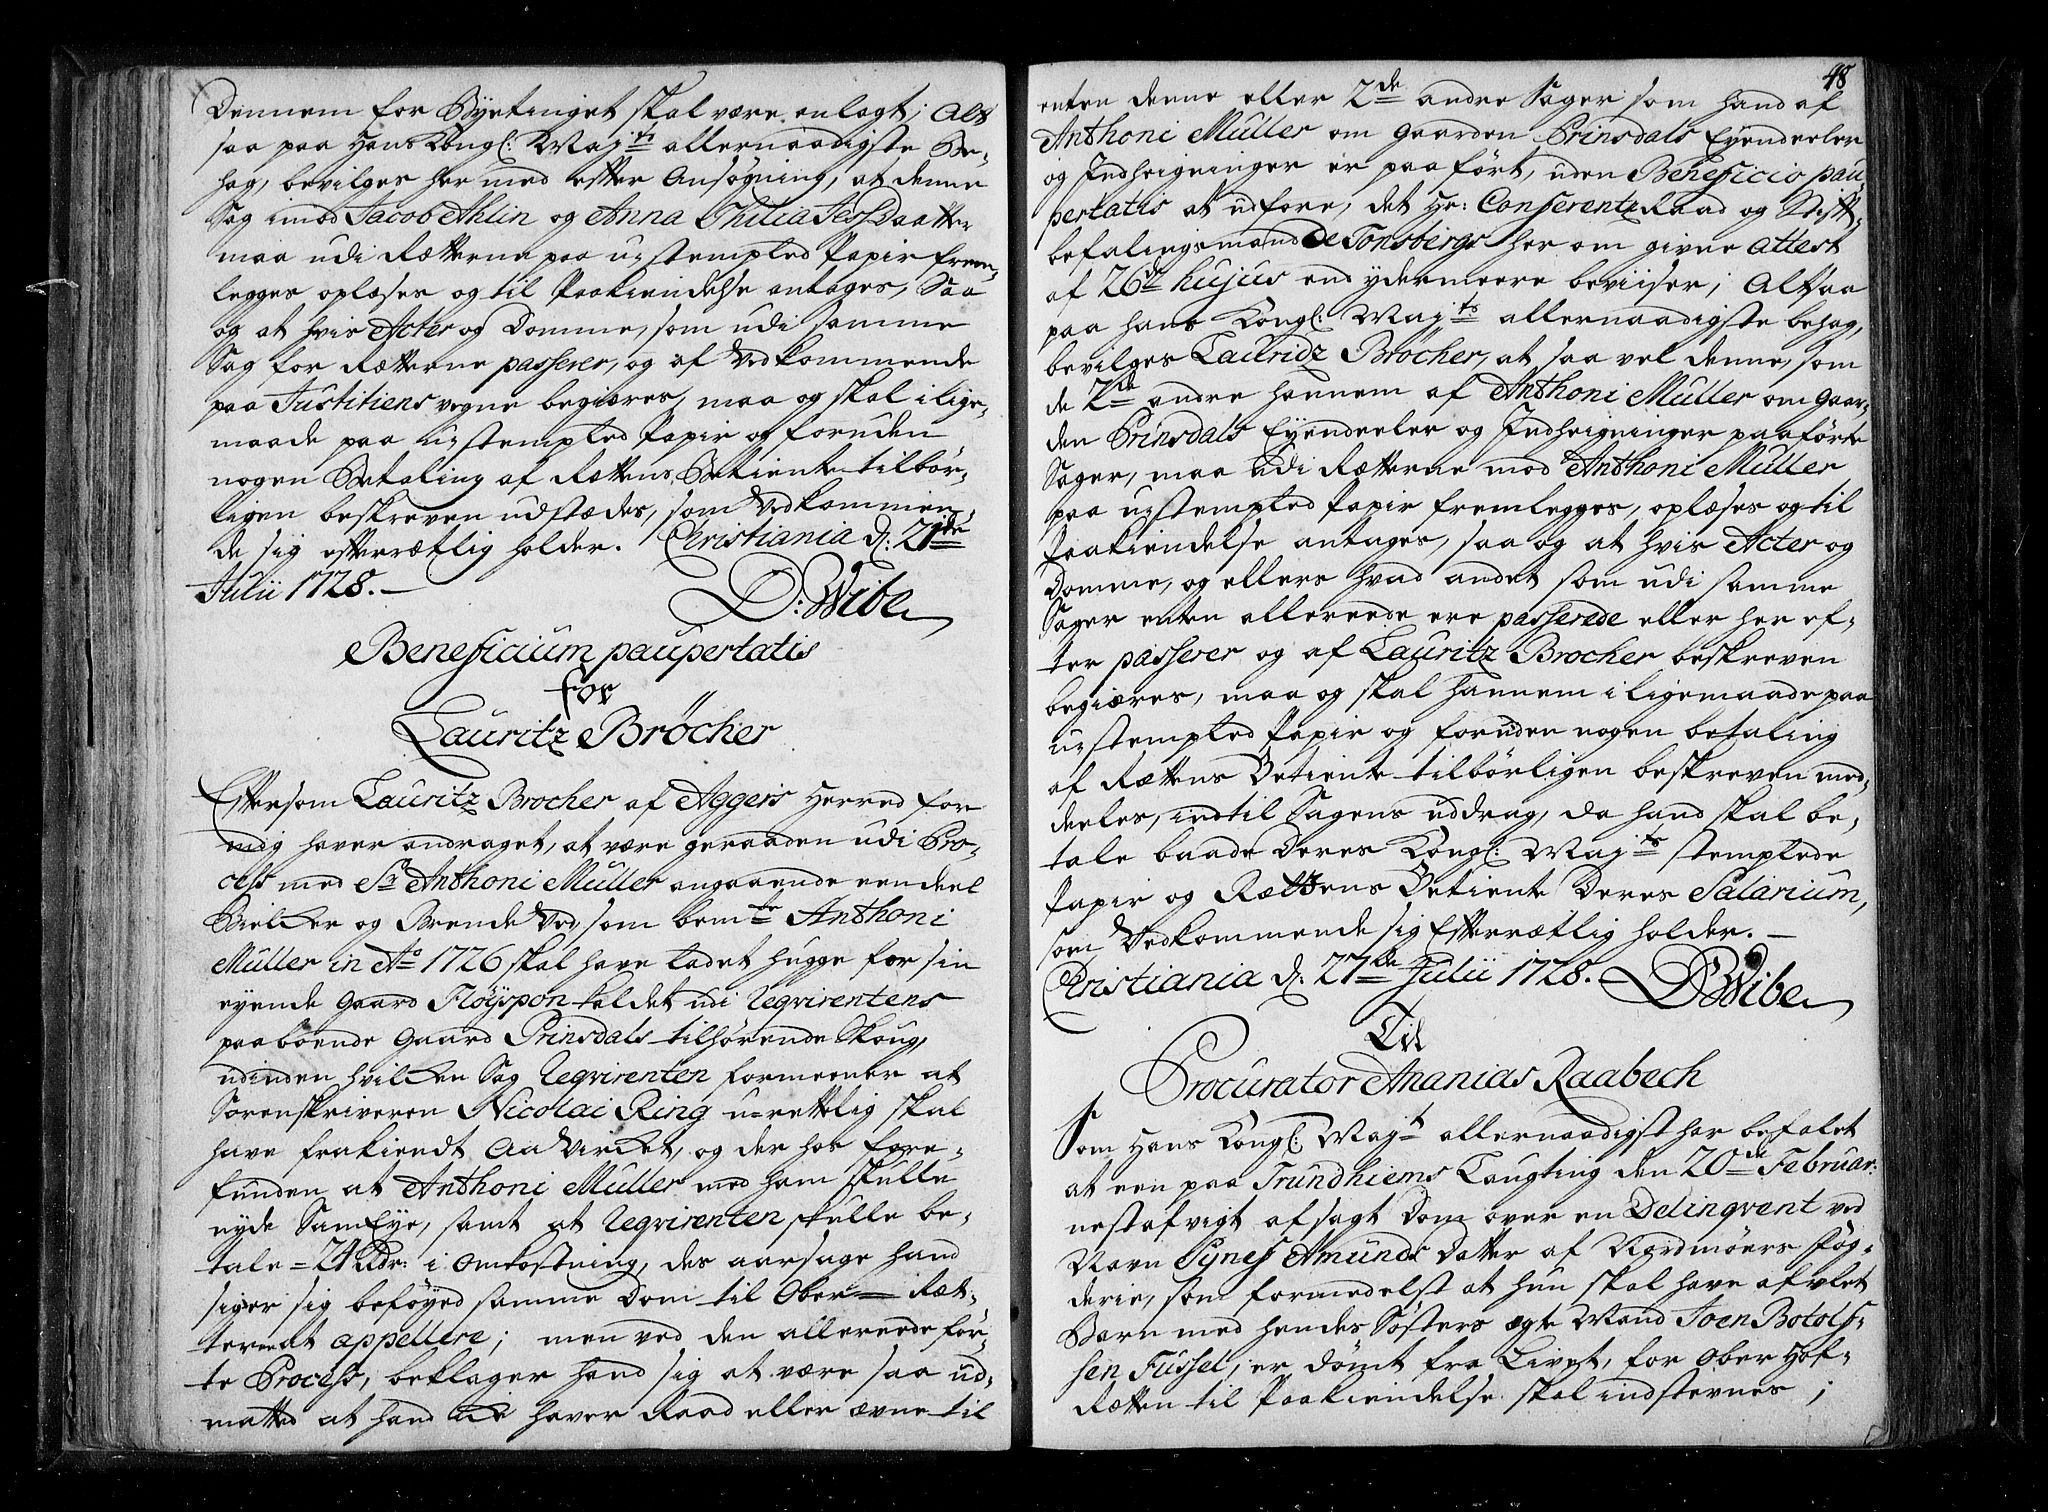 Dennem for Byetinget skal være anlagt; Alt
saa paa Hans Kongl: Maj:ts allernaadigste Be-
hag, bevilges her med efter Ansøgning, at denne
Sag imod Jacob Ahlin og Anna Chilia Jessdaatter
maa udi Rætterne paa u-stempled Papir frem-
legges oplæses og til Paakiendelse antages, Saa
og at hvis Acter og Domme, som udi samme
Sag for Rætterne passerer, og af Vedkommende
paa Justitiens vegne begiæres, maa og skal i lige-
maade paa u-stempled Papir og foruden
nogen Betaling af Rættens Betiente tilbör-
ligen beskreven udstædes, som Vedkommen-
de sig efterrætlig holder. Christiania d: 21de
Julii 1728.—
D: Wibe
Beneficium paupertatis
for
Lauritz Bröcher
Eftersom Lauritz Brocher af Aggers Herred for
mig haver andraget, at være geraaden udi Pro-
cess med Sr Anthoni Müller angaaende een deel
Bielker og Brende Ved, som bemte Anthoni
Müller in Ao 1726 skal have ladet hugge for sin
eyende Gaard Flöyspon kaldet udi Reqvirentens
paaboende Gaard Prinsdals tilhörende Skoug,
udinden hvilken Sag Reqvirenten formeener at
Sorenskriveren Nicolai Ring u-rettelig skal
have frakiendt Aa Virket, og der hos fore-
funden at Anthoni Müller med ham skulle
nyde SamEye, samt at Reqvirenten skulle be-
tale = 24 Rdr: i Omkostning, des aarsage hand
siger sig beföyed samme Dom til Ober— Ræt-
terne at appellere; men ved den allereede for-
te Process, beklager hand sig at være saa ud-
matted at hand icke haver Raad eller ævne til
48
enten denne eller 2de andre Sager som hand af
Anthoni Müller om Gaarden Prinsdals Eyendeeler
og Indheigninger er paafört, uden Beneficio pau-
pertatis at udföre, det Hr: Conferentz Raad og Stift-
befalingsmand De Tonsbergs her om givne Attest
af 26de hujus end ydermeere beviiser; Altsaa
paa hans Kongl: Maj:ts allernaadigste behag,
bevilges Lauridz Bröcher, at saa vel denne, som
de 2de andre hannem af Anthoni Müller om Gaar-
den Prinsdals Eyendeeler og Indheigninger paaförte
Sager, maa udi Rætterne mod Anthoni Müller
paa u-stempled Papir fremlegges, oplæses og til
Paakiendelse antages, saa og at hvis Acter og
Domme, og ellers hvad andet som udi samme
Sager enten allereede ere passerede eller her ef-
ter passerer og af Lauritz Brocher beskreven
begiæres, maa og skal hannem i ligemaade paa
u-stempled Papir og foruden nogen betaling
af Rættens Betiente tilbörligen beskreven med-
deeles, indtil Sagens uddrag, da hand skal be-
tale baade Deres Kongl: Maj:ts stemplede
Papir og Rættens Betiente Deres Salarium,
som Vedkommende sig Efterrætlig holder.—
Christiania d: 27de Julii 1728.— D Wibe
Til
Procurator Ananias Raabech
Som Hans Kongl: Maj:t allernaadigst har befalet
at een paa Trundhiems Laugting den 20de Februar:
nestafvigt afsagt Dom over en Delinqvent ved
Navn Synes Amunds Datter af Nordmöers Fog-
derie, som formedelst at hun skal have aflet
Barn med hendes Sösters egte Mand Joen Botols-
sen Fussel, er dömt fra Livet, for Ober Hof-
Rætten til Paakiendelse skal indstevnes;